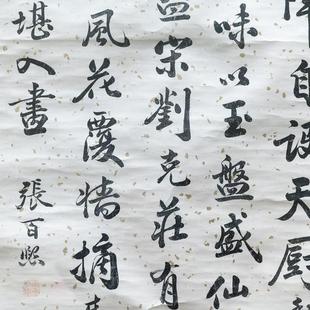 自天厨
味以玉盤盛仙
宋劉克莊有
風花覆墻摘
堪入畫
張百熙